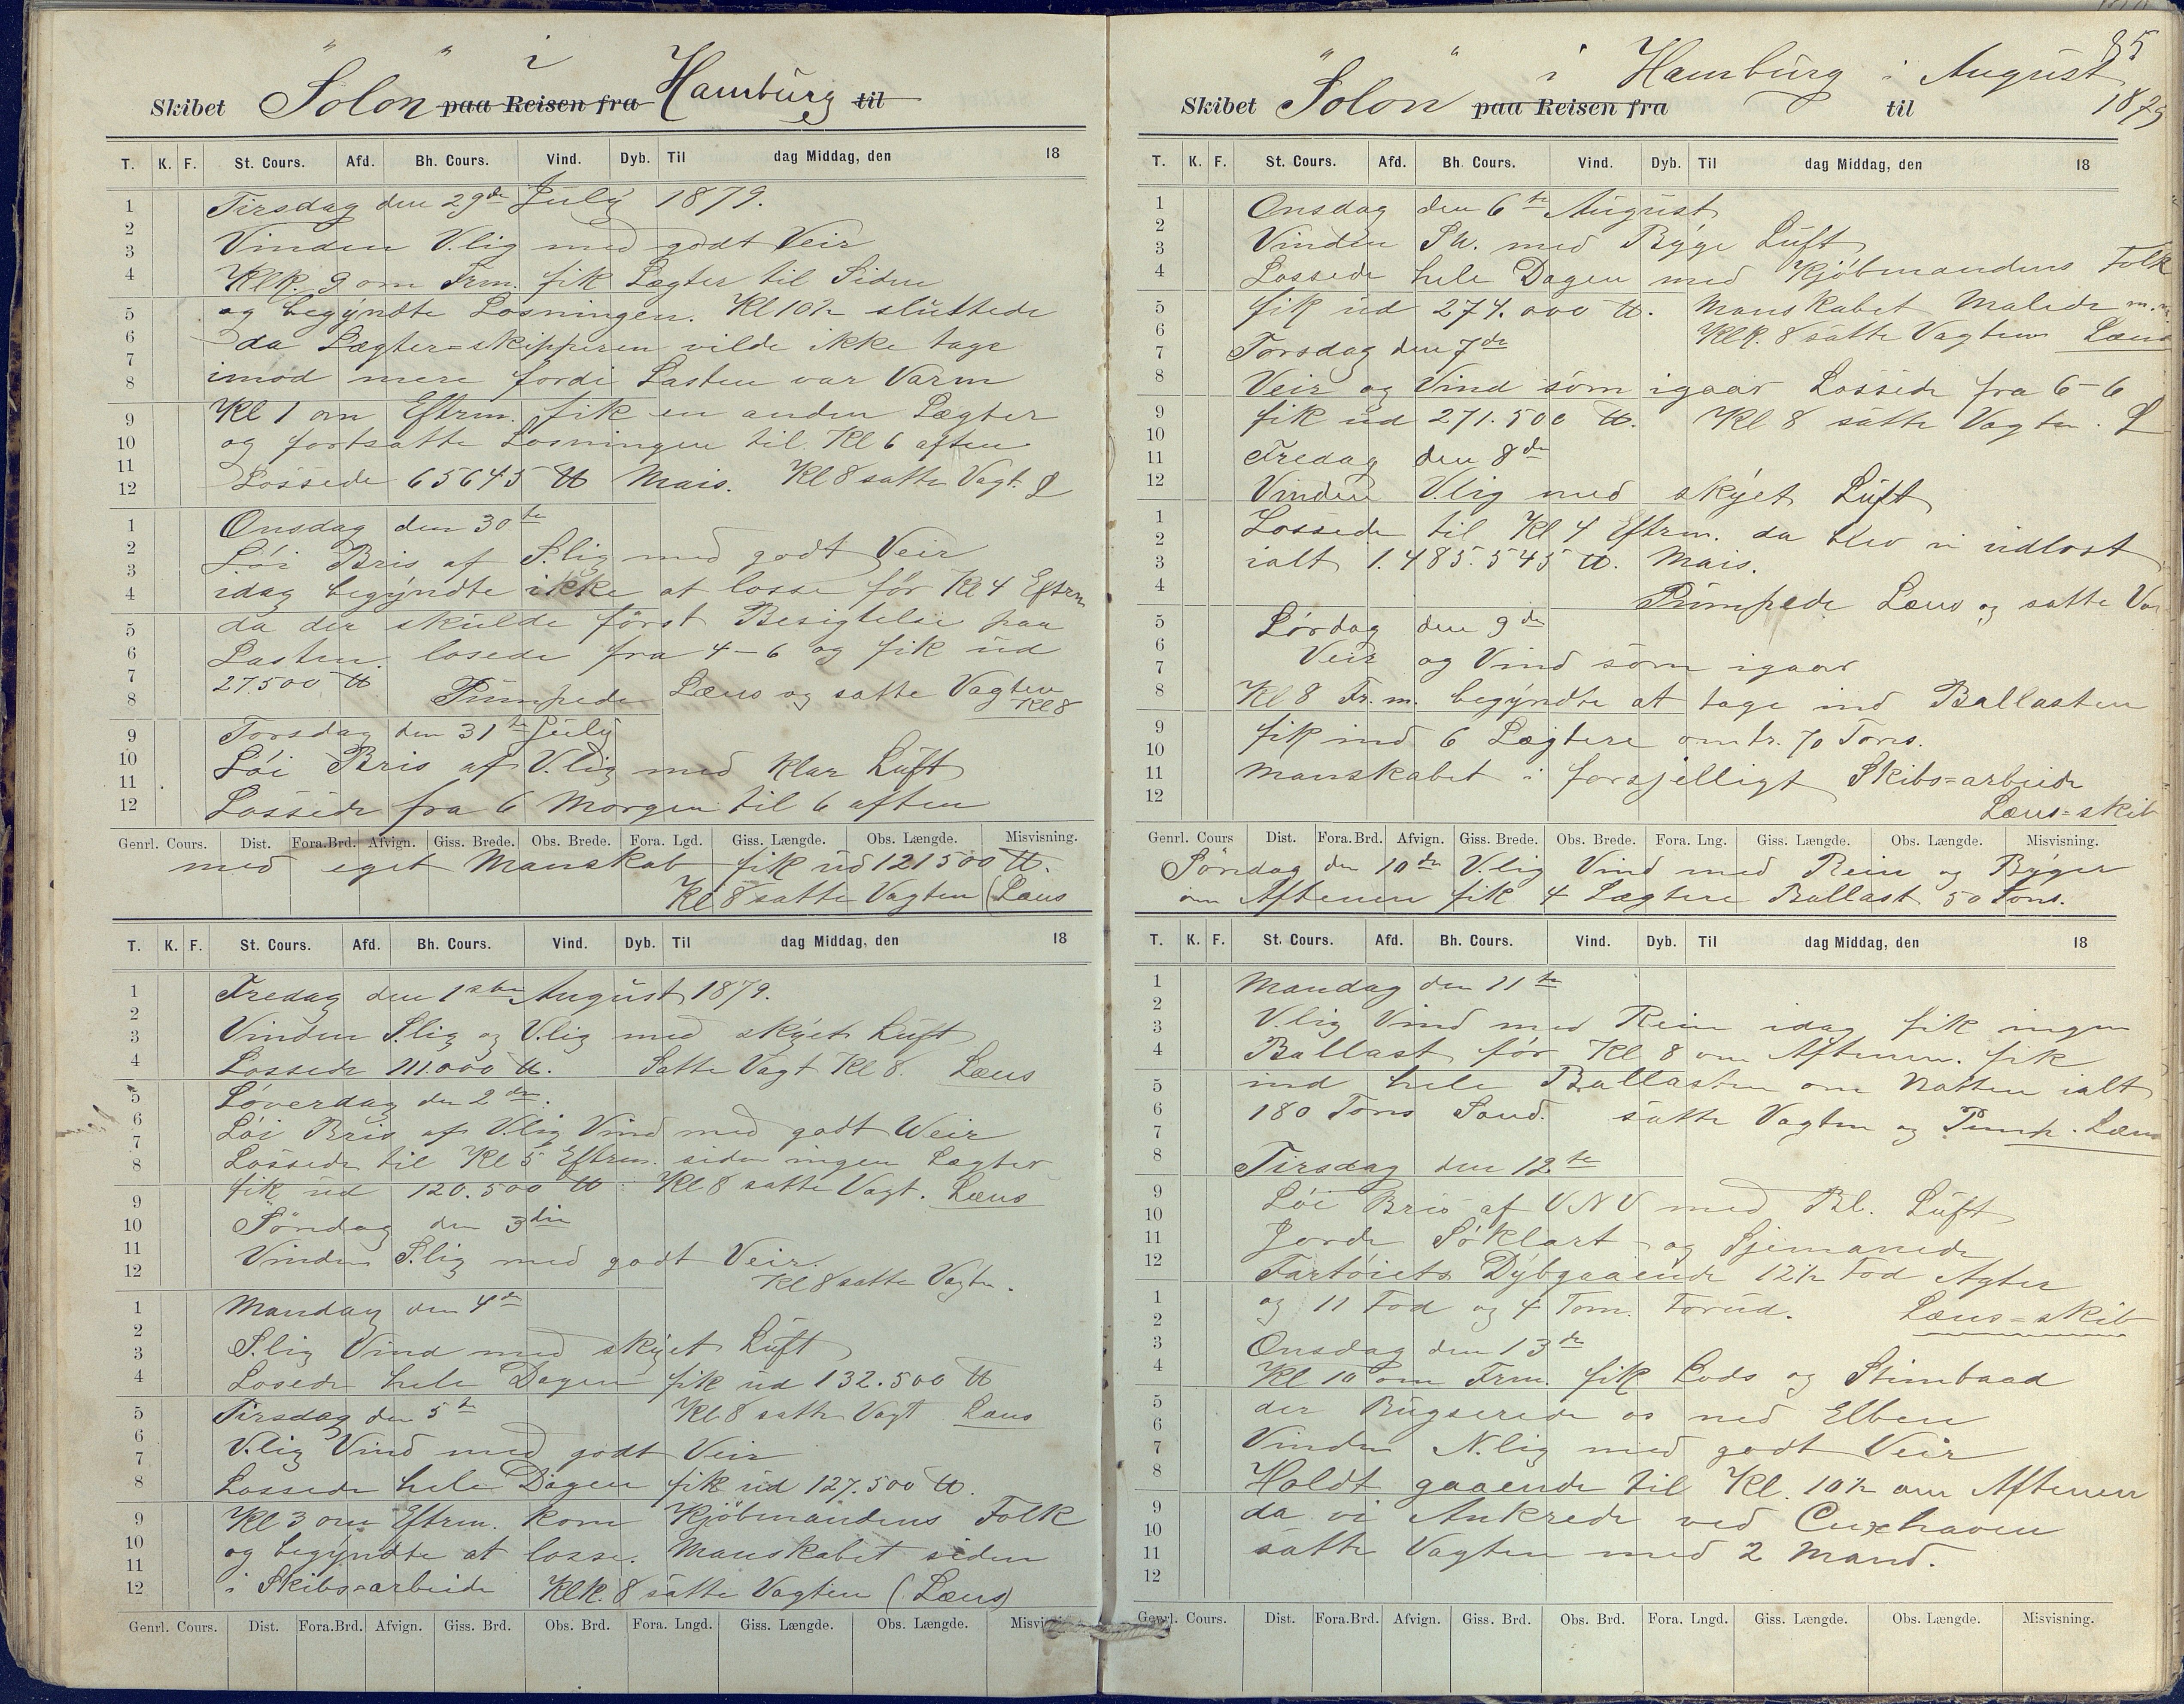 Skibet "Solon" paa Reisen fra i Hamburg til
T. K. F. St. Cours. Afd. Bh. Cours. Vind. Dyb. Til dag Middag, den 18
Tirsdag den 29de July 1879.
Vinden V.lig med godt Veir
Klk. 9 om Frm. fik Lægter til Siden
og begyndte Losningen. Kl 10½ sluttede
da Lægter=skipperen vilde ikke tage
imod mere fordi Lasten var Varm
Kl 1 om Eftrm. fik en anden Lægter
og fortsatte Losningen til Kl 6 aften
Lossede 65645 ℔ Mais. Kl 8 satte Vagt. L
Onsdag den 30te
Löi Bris af S.lig med godt Veir
idag begyndte ikke at losse för Kl 4 Eftrm
da der skulde först Besigtelse paa
Lasten. losede fra 4-6 og fik ud
27.500 ℔ Pumpede Læns og satte Vagten
Kl 8
Torsdag den 31te July
Löi Bris af V.lig med klar Luft
Lossede fra 6 Morgen til 6 aften
Genrl. Cours. Dist. Fora.Brd. Afvign. Giss. Brede. Obs. Brede. Fora. Lgd. Giss. Længde. Obs. Længde. Misvisning.
med eget Manskab fik ud 121500 ℔.
Kl 8 satte Vagten (Læns
T. K. F. St. Cours. Afd. Bh. Cours. Vind. Dyb. Til dag Middag, den 18
Fredag den 1ste August 1879.
Vinden S.lig og V.lig med skyet Luft
Lossede 111.000 ℔. Satte Vagt Kl 8. Læns
Löverdag den 2den.
Löi Bris af V.lig Vind med godt Weir
Lossede til Kl 5 Eftrm. siden ingen Lægter
fik ud 120.500 ℔. Kl 8 satte Vagt. Læns
Söndag den 3die
Vinden S.lig med godt Veir.
Kl 8 satte Vagten.
Mandag den 4de
S.lig Vind med skyet Luft
Losede hele Dagen fik ud 132.500 ℔
Tirsdag den 5te Kl 8 satte Vagt Læns
V.lig Vind med godt Veir
Lossede hele Dagen fik ud 127.500 ℔.
Kl 3 om Eftrm. kom Kjöbmandens Folk
og begyndte at losse. Manskabet siden
i Skibs=arbeide Klk. 8 satte Vagten (Læns)
Genrl. Cours. Dist. Fora.Brd. Afvign. Giss. Brd. Obs. Brd. Fora. Lngd. Giss. Længde. Obs. Længde.
85
Skibet "Solon" paa Reisen fra i Hamburg til i August
1879
T. K. F. St. Cours. Afd. Bh. Cours. Vind. Dyb. Til dag Middag, den 18
Onsdag den 6te August
Vinden SW. med Byge Luft
Lossede hele Dagen med Kjöbmandens Folk
fik ud 274.000 ℔. Manskabet Malede m.m.
Klk. 8 satte Vagten Læns
Torsdag den 7de
Veir og Vind som igaar Lossede fra 6-6
fik ud 271.500 ℔. Kl 8 satte Vagten. L
Fredag den 8de
Vinden V.lig med skyet Luft
Lossede til Kl 4 Eftrm. da blev vi udlost
ialt 1.485.545 ℔. Mais.
Pumpede Læns og satte Va
Lördag den 9de
Veir og Vind som igaar
Kl 8 Fr.m. begyndte at tage ind Ballasten
fik ind 6 Lægtere omtr. 70 Tons.
Manskabet i forsjelligt Skibs=arbeide
Læns=skib
Genrl. Cours Dist. Fora.Brd. Afvign. Giss. Brede. Obs. Brede. Fora. Lng. Giss. Længde. Obs. Længde. Misvisning.
Söndag den 10de V.lig Vind med Rein og Byger
om Aftenen fik 4 Lægtere Ballast 50 Tons.
T. K. F. St. Cours. Afd. Bh. Cours. Vind. Dyb. Til dag Middag, den 18
Mandag den 11te
V.lig Vind med Rein idag fik ingen
Ballast för Kl 8 om Aftenen. fik
ind hele Ballasten om Natten ialt
180 Tons Sand. satte Vagten og Pump. Læns
Tirsdag den 12te
Löi Bris af VNV med Bl. Luft
Jorde Söklart og Sjemanede
Fartöiets Dybgaaende 12½ Fod Agter
og 11 Fod og 4 Tom. Forud. Læns=skib
Onsdag den 13de
Kl 10 om Frm. fik Lods og Stimbaad
der Bugserede os ned Elben
Vinden N.lig med godt Veir
Holdt gaaende til Kl. 10½ om Aftenen
da vi Ankrede ved Cuxhaven
satte Vagten med 2 Mand.
Genrl. Cours. Dist. Fora.Brd. Afvign. Giss. Brd. Obs. Brd. Fora. Lngd. Giss. Længde. Obs. Længde. Misvisning.